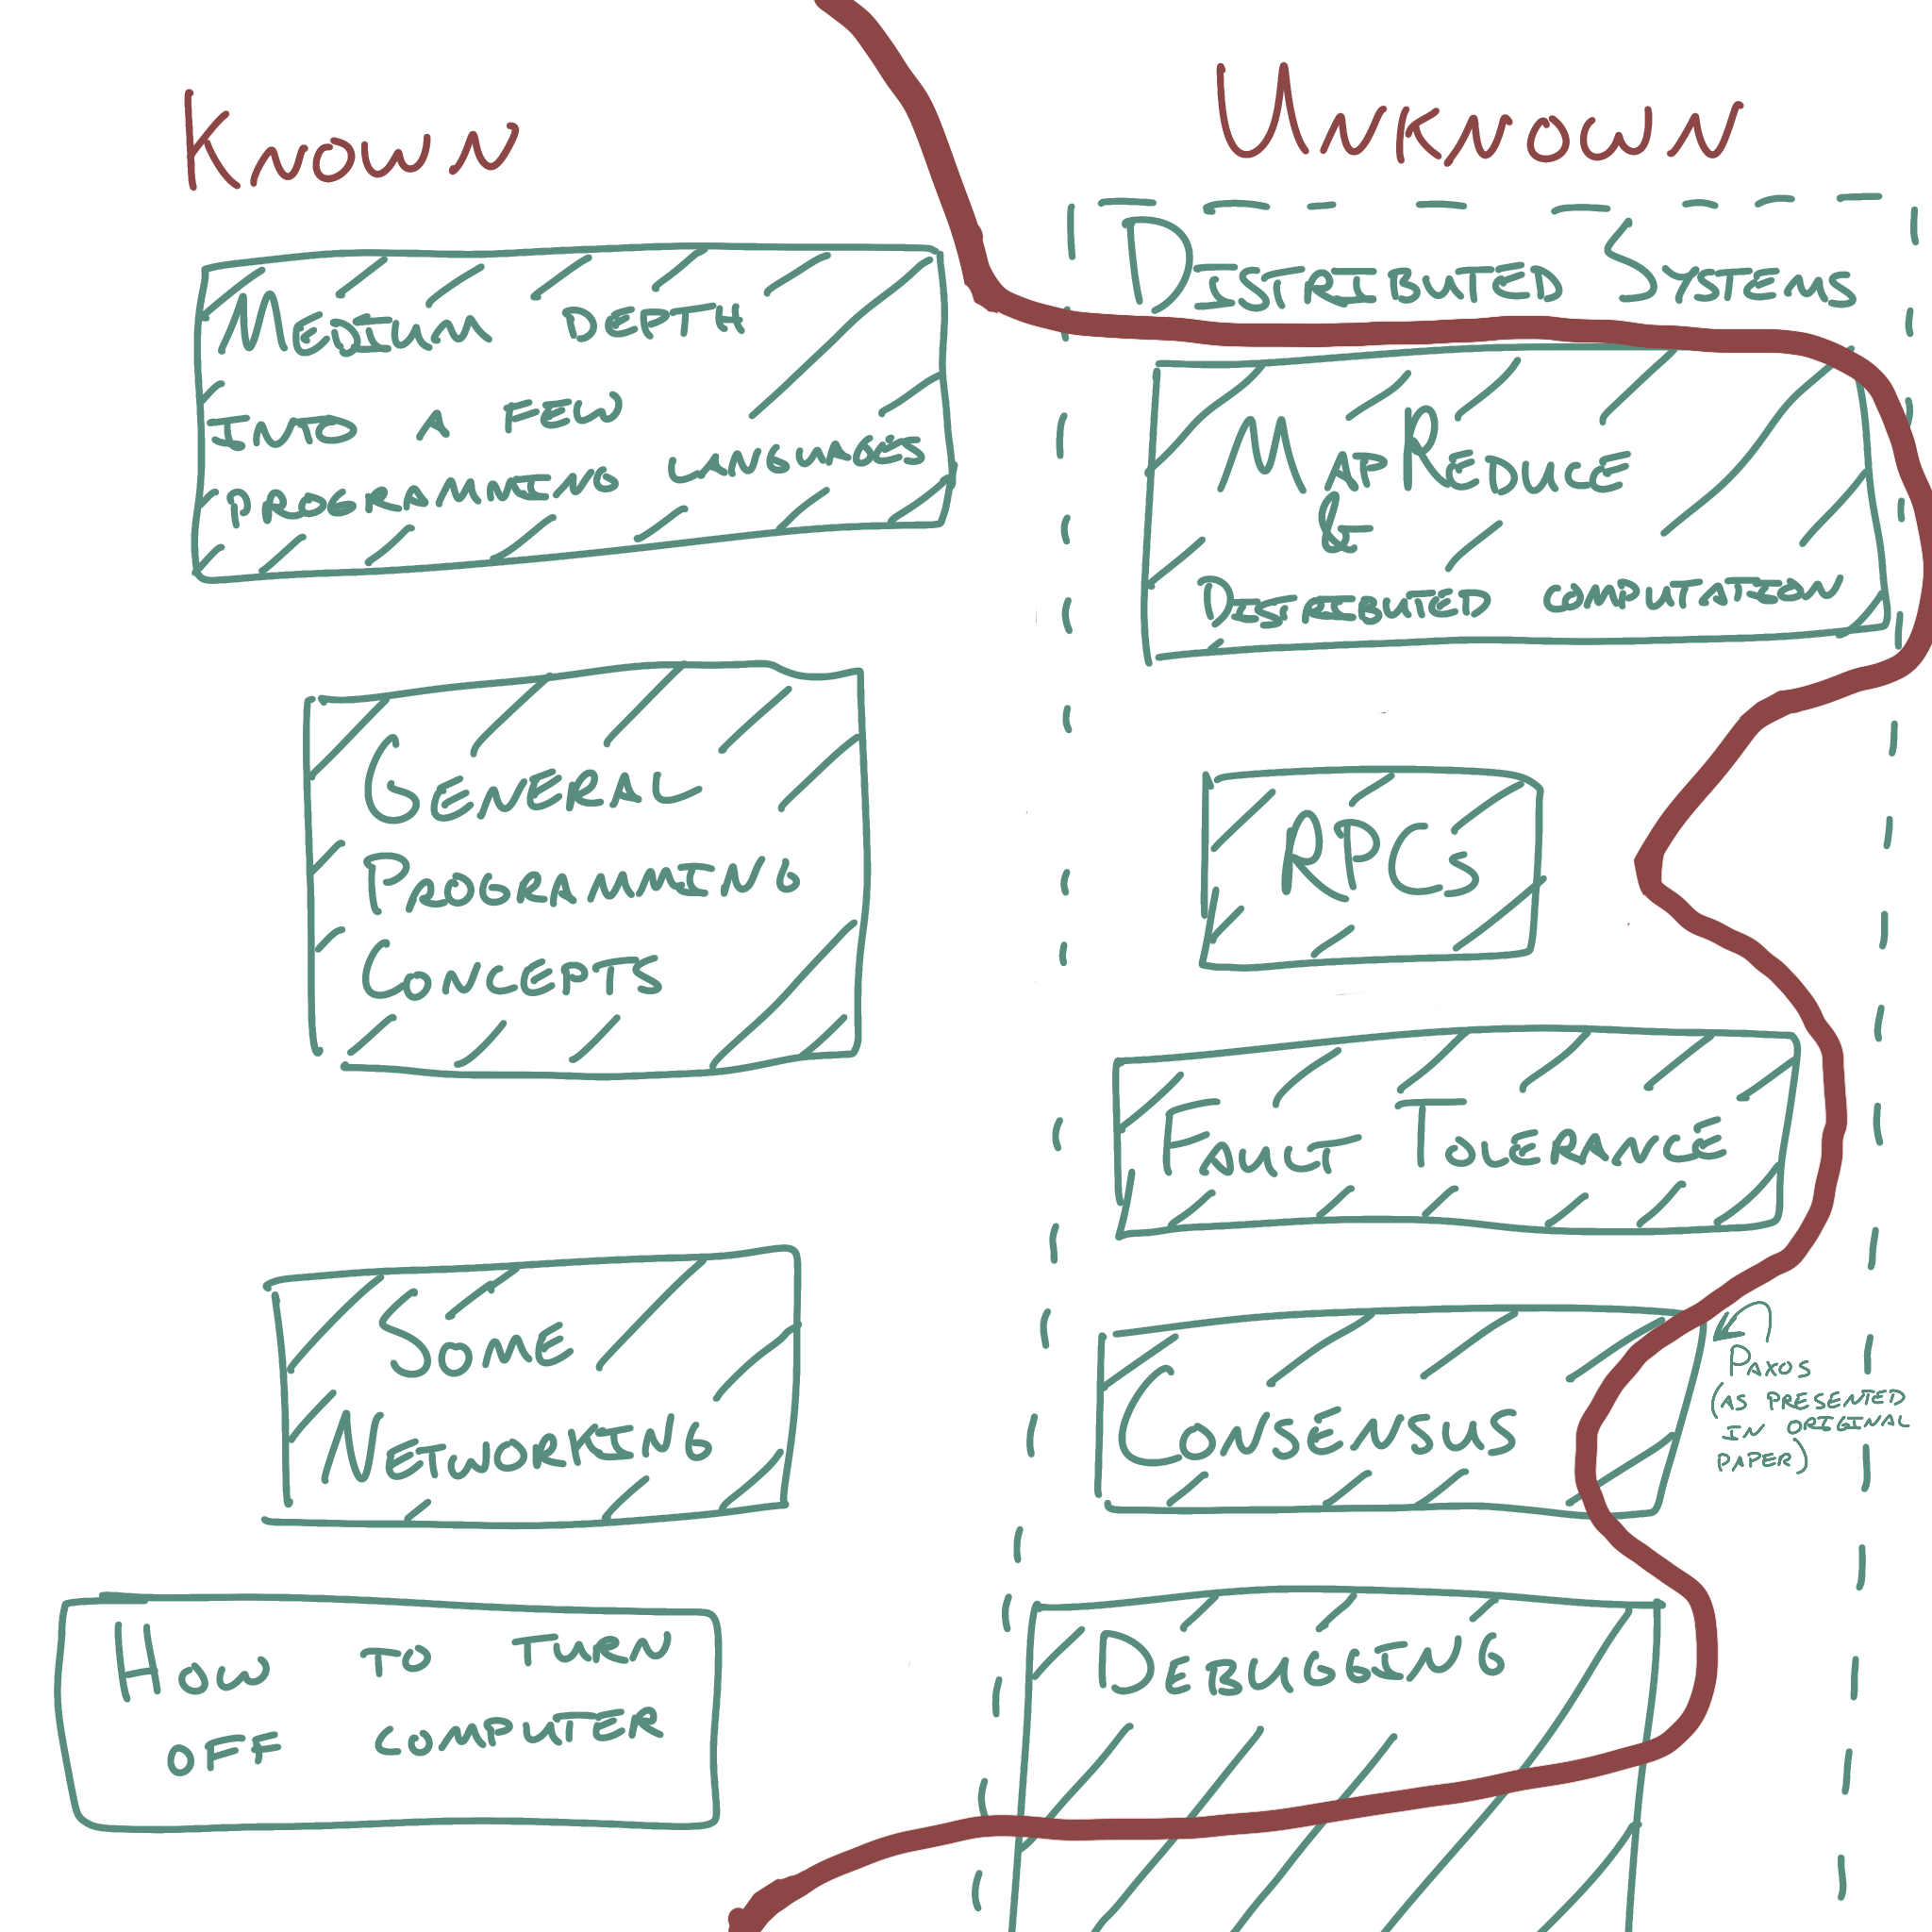 Known
Unknown
Medium DEPTH
INTO A FEW
PROGRAMMING LANGUAGES
GENERAL
PROGRAMMING
CONCEPTS
SOME
NETWORKING
HOW TO TURN
OFF COMPUTER
DISTRIBUTED SYSTEMS
MAPREDUCE
&
DISTRIBUTED COMPUTATION
RPCs
FAULT TOLERANCE
CONSENSUS
PAXOS
(AS PRESENTED
IN ORIGINAL
PAPER)
DEBUGGING